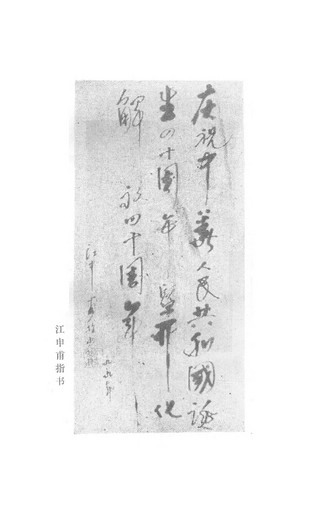 庆祝中華人民共和國诞
生四十周年暨开化
解放四十周年
江申甫指书
江申甫指书